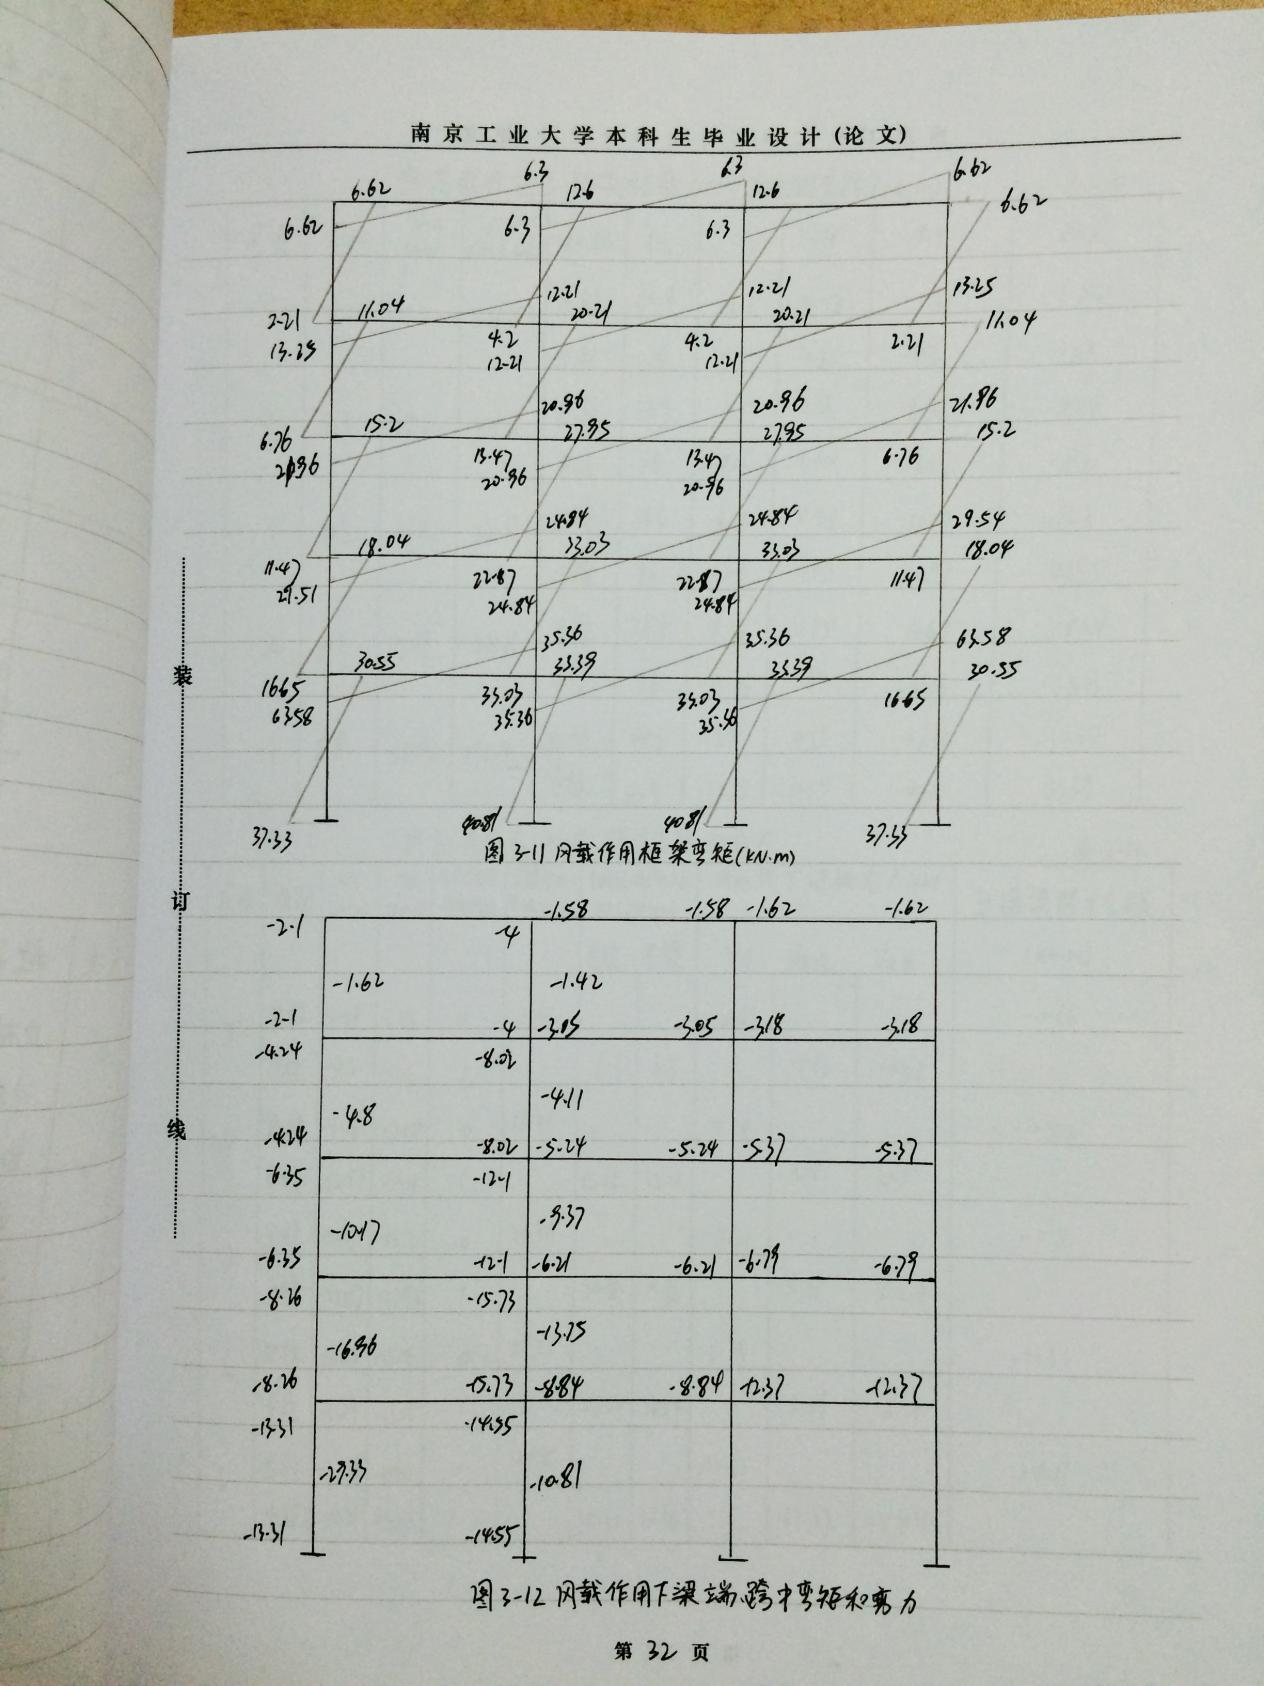 南京工业大学本科生毕业设计(论文)
6.3 6.3 6.62
6.62 12.6 12.6 6.62
6.62 6.3 6.3
12.21 12.21 13.25
2.21 11.04 20.21 20.21 11.04
13.25 4.2 4.2 2.21
12.21 12.21
20.96 20.96 21.96
15.2 27.95 27.95 15.2
6.76 13.47 13.47 6.76
20.96 20.96
24.84 24.84 29.54
18.04 33.03 33.03 18.04
11.47 22.87 22.87 11.47
29.51 24.84 24.84
35.36 35.36 63.58
30.55 33.39 33.39 30.55
16.65 33.03 33.03 16.65
63.58 35.36 35.36
37.33 40.81 40.81 37.33
图3-11 风载作用框架弯矩(KN.m)
-1.58 -1.58 -1.62 -1.62
-2.1 -4
-1.62 -1.42
-2.1 -4 -3.05 -3.05 -3.18 -3.18
-4.24 -8.02
-4.8 -4.11
-4.24 -8.02 -5.24 -5.24 -5.37 -5.37
-6.35 -12.1
-10.17 -9.37
-6.35 -12.1 -6.21 -6.21 -6.79 -6.79
-8.26 -15.73
-16.96 -13.75
-8.26 -15.73 -8.84 -8.84 -12.37 -12.37
-13.31 -14.55
-29.33 -10.81
-13.31 -14.55
图3-12 风载作用下梁端、跨中弯矩和剪力
第 32 页
装
订
线